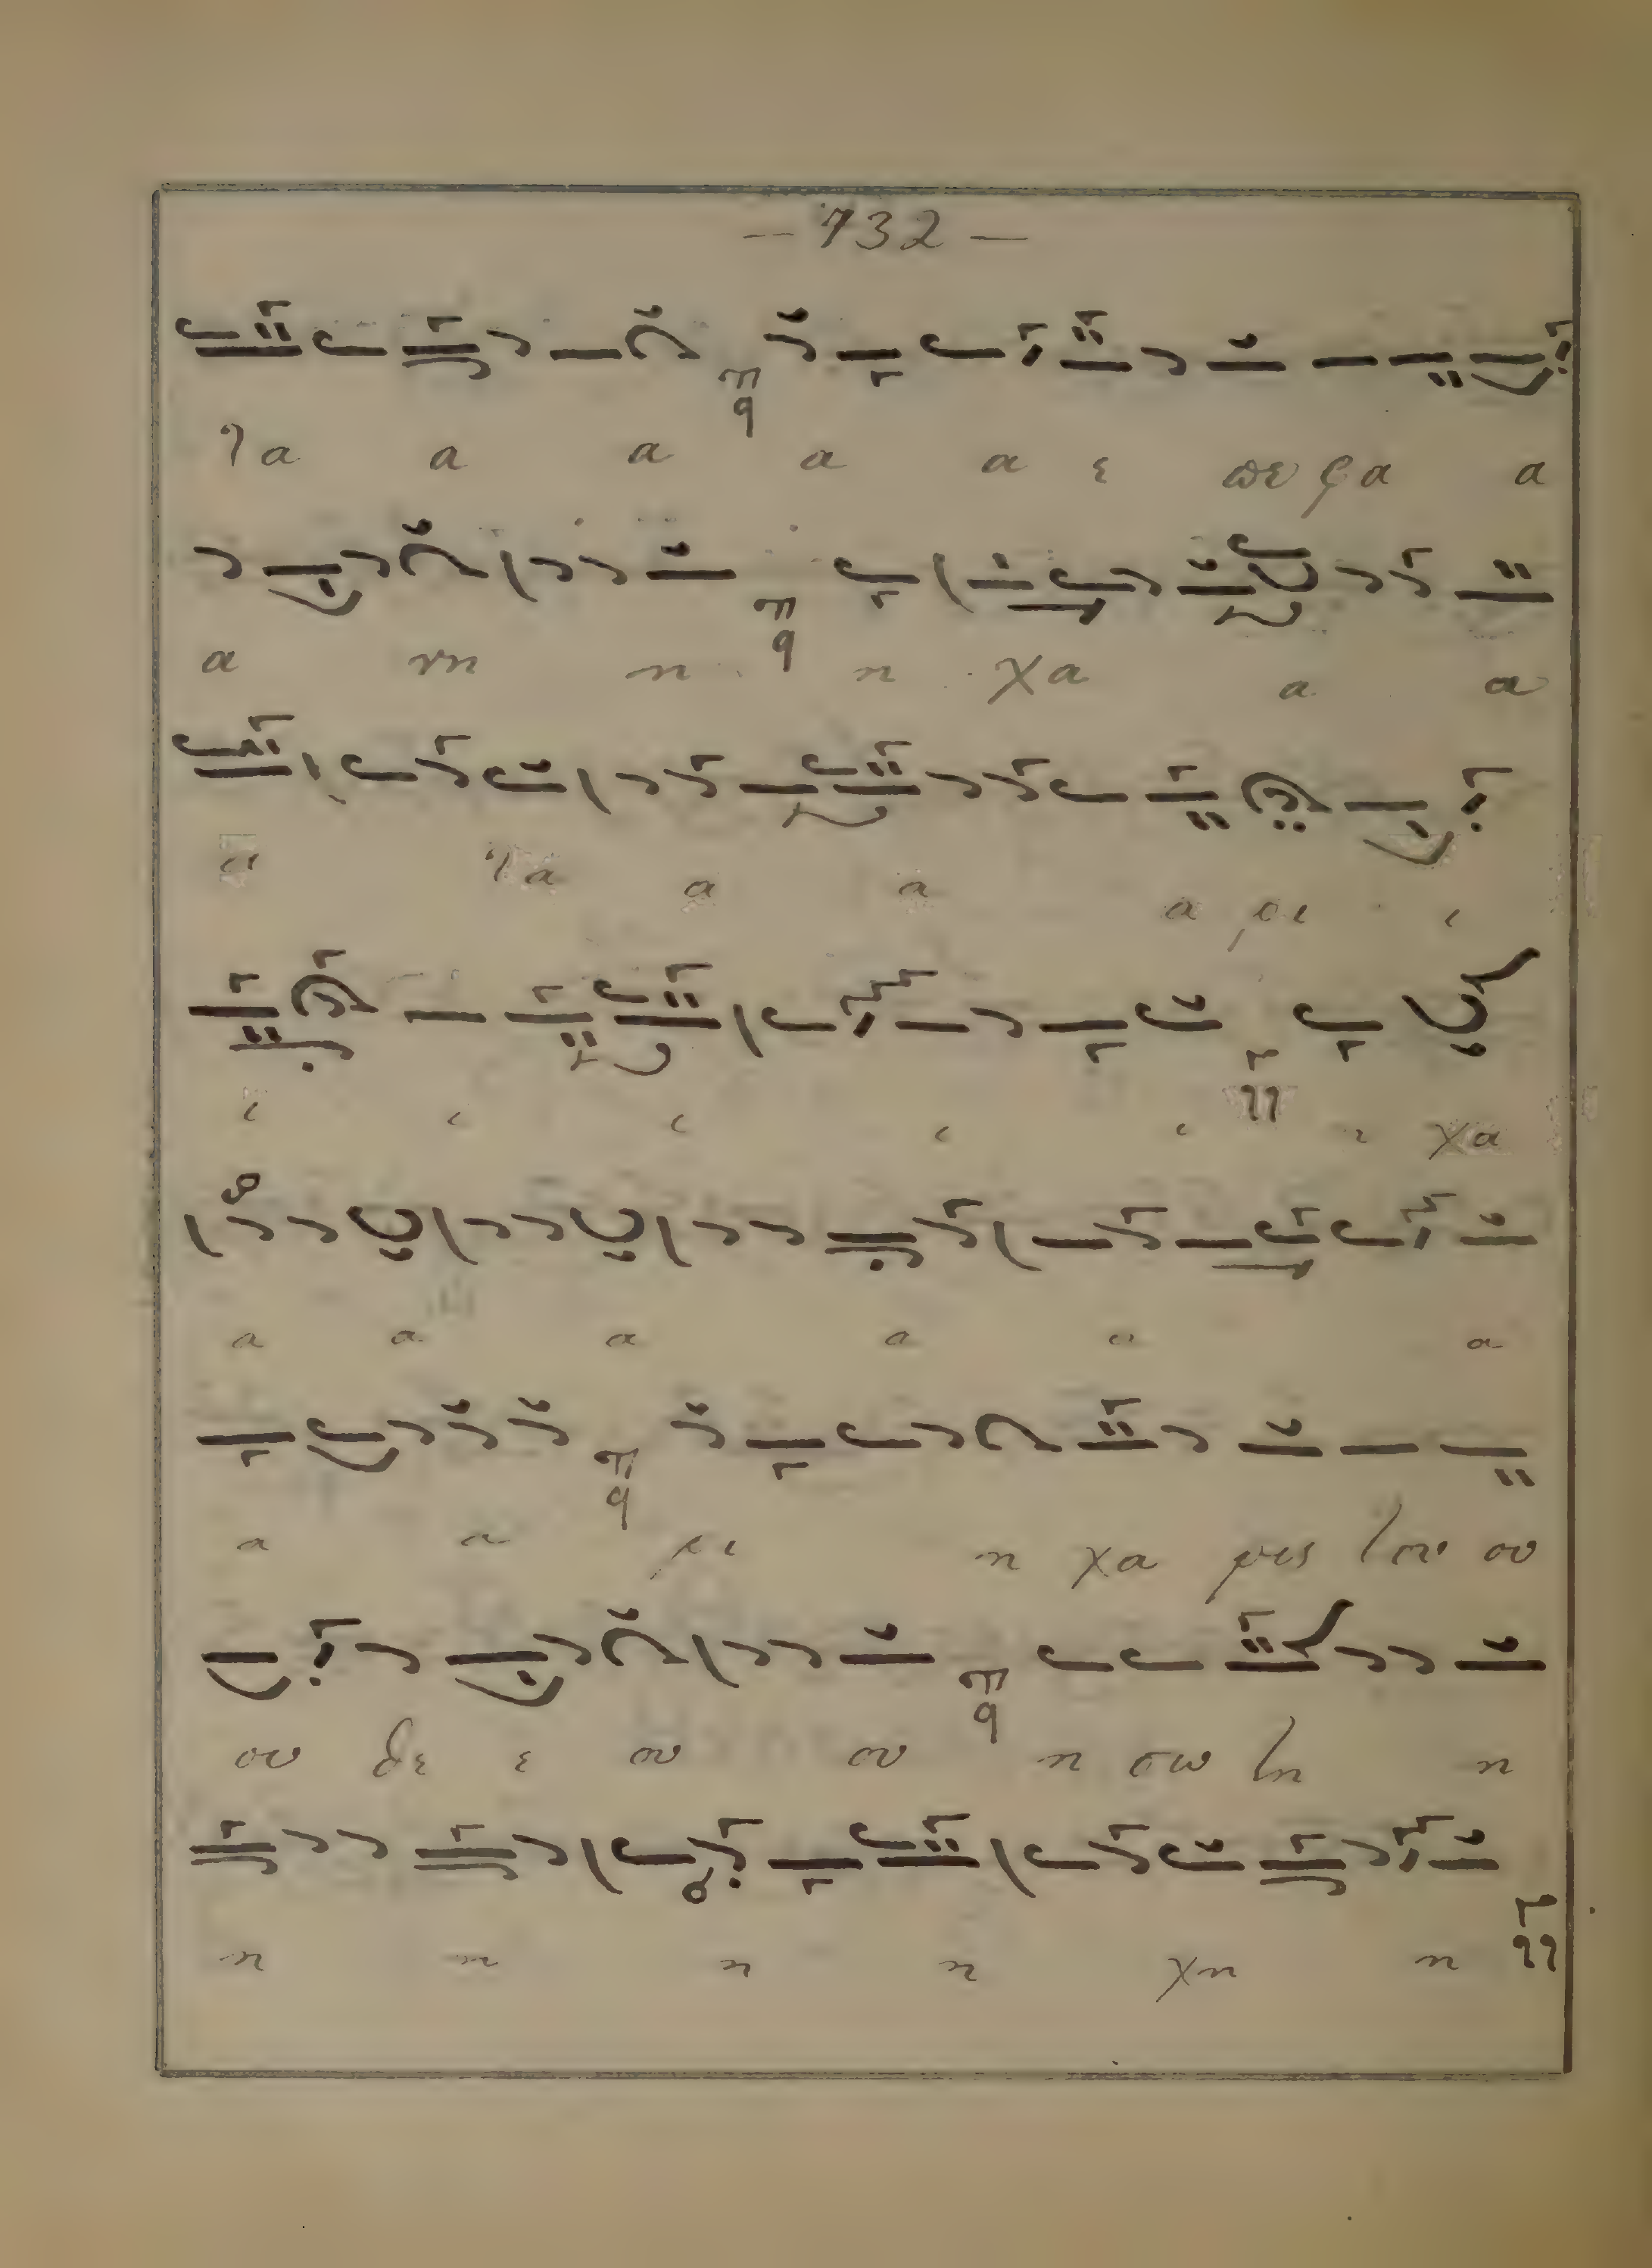 — 732 —
τα α α α α ε πε φα α
α νη η η χα α α
α τα α α α ρι ι
ι ι ι ι ι ι χα
α α α α α α
α α ρι η χα ρις του ου
ου δε ε ου ου η σω τη η
η η η η χη η